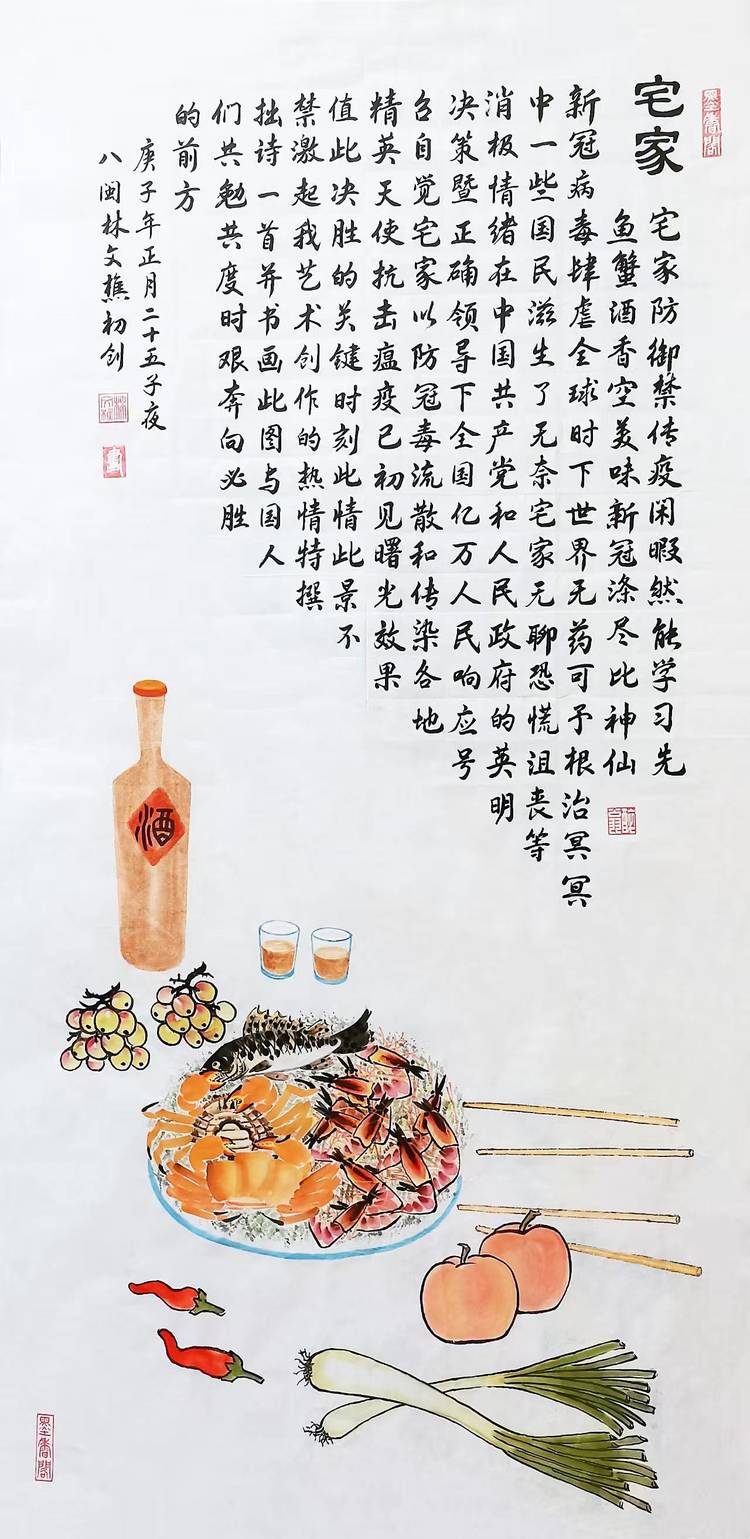 墨香阁
宅家
宅家防御禁传疫闲暇然能学习先
鱼蟹酒香空美味新冠涤尽比神仙
新冠病毒肆虐全球时下世界无药可予根治冥冥
中一些国民滋生了无奈宅家无聊恐慌沮丧等
消极情绪在中国共产党和人民政府的英明
决策暨正确领导下全国亿万人民响应号
召自觉宅家以防冠毒流散和传染各地
精英天使抗击瘟疫已初见曙光效果
值此决胜的关键时刻此情此景不
禁激起我艺术创作的热情特撰
拙诗一首并书画此图与国人
们共勉共度时艰奔向必胜
的前方
庚子年正月二十五子夜
八闽林文樵初创
酒
墨香阁